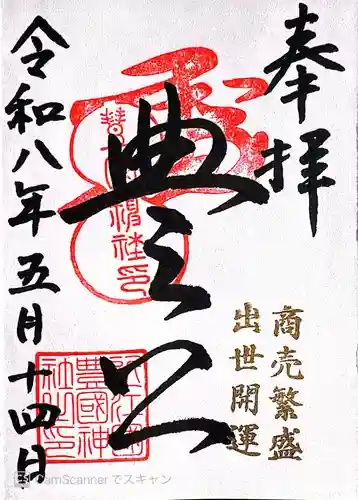 奉拝
豊公
商売繁盛
出世開運
令和八年五月十四日
豊國神
CamScanner でスキャン